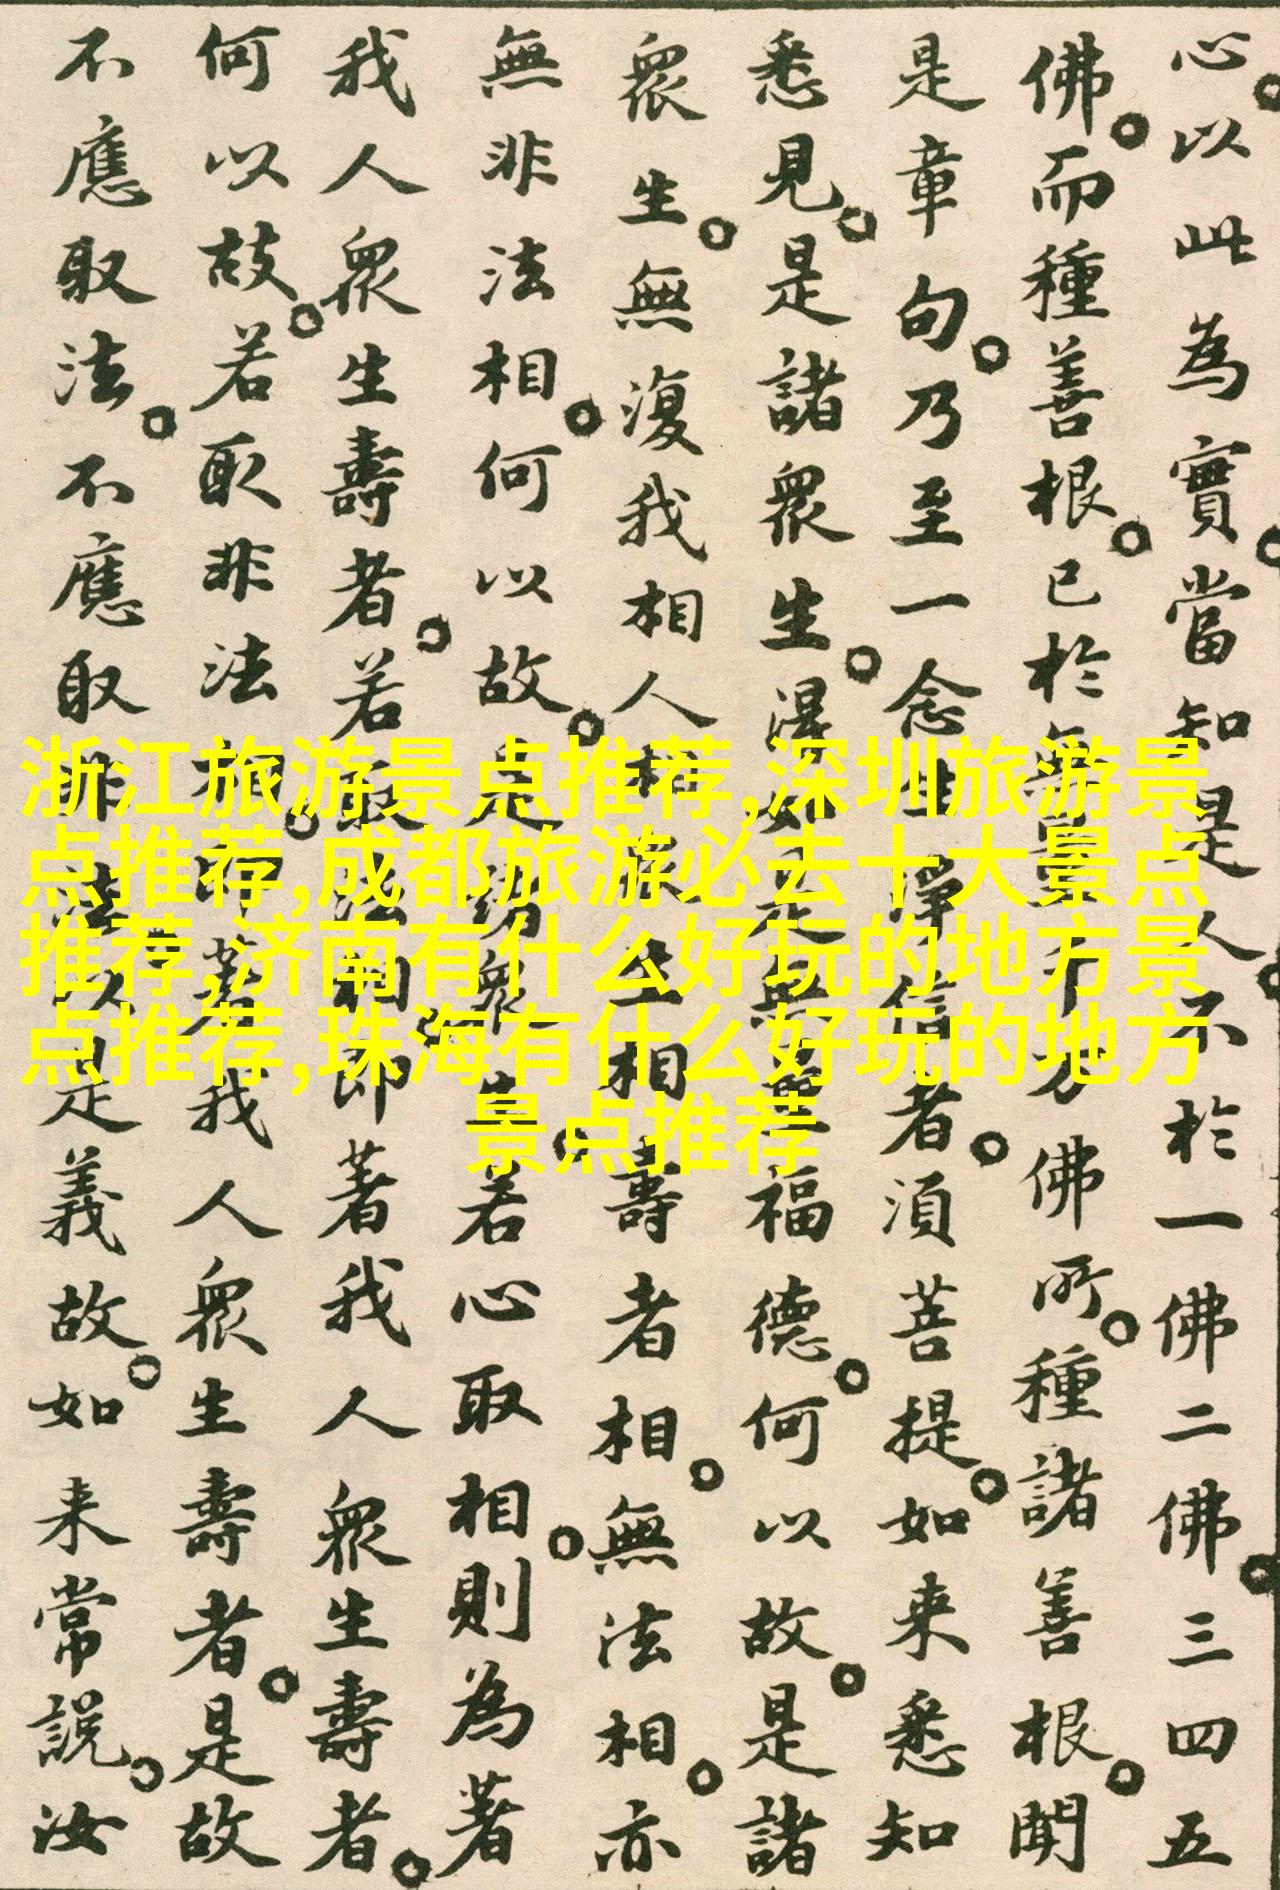 心。以此為實。當知是人。不於一佛二佛。三四五
佛。而種善根。已於無量千万佛所。種諸善根。聞
是章句。乃至一念生淨信者。須菩提。如来悉知
悉見。是諸眾生。淂如是無量福德。何以故。是諸
眾生。無復我相人相眾生相壽者相。無法相。亦
無非法相。何以故。是諸眾生。若心取相。則為著
我人眾生壽者。若取法相。即著我人眾生壽者。
何以故。若取非法相。即著我人眾生壽者。是故
不應取法。不應取非法。以是義故。如来常説。汝
浙江旅游景点推荐,深圳旅游景
点推荐,成都旅游必去十大景点
推荐,济南有什么好玩的地方景
点推荐,珠海有什么好玩的地方
景点推荐